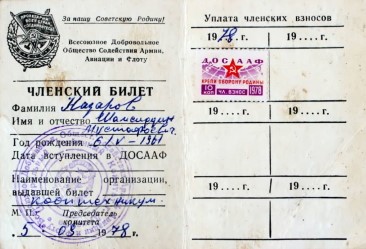 За нашу Советскую Родину!
Всесоюзное Добровольное
Общество Содействия Армии,
Авиации и Флоту
ЧЛЕНСКИЙ БИЛЕТ
Фамилия Назаров
Имя и отчество Шамсиддин
Мустафоевич
Год рождения 6/V-1961
Дата вступления в ДОСААФ
Наименование организации,
выдавшей билет
М. П. Председатель
комитета
5 03 1978 г.
Уплата членских взносов
1978 г. 19.... г.
ДОСААФ
КРЕПИ ОБОРОНУ РОДИНЫ
10 КОП ЧЛ. ВЗНОС 1978
19.... г. 19.... г.